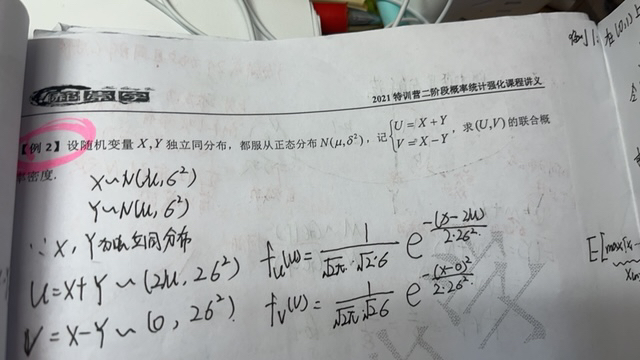 2021 特训营二阶段概率统计强化课程讲义
【例 2】设随机变量 X,Y 独立同分布，都服从正态分布 N(μ,δ²)，记 { U = X + Y
V = X − Y ，求 (U,V) 的联合概
率密度．
X~N(μ,6²)
Y~N(μ,6²)
∵ X, Y 独立同分布
U=X+Y ~ (2μ, 26²)
V = X-Y ~ (0, 26²)
f_U(u)= 1/(√2π·√2·6) e^(-(x-2μ)/(2·26²))
f_V(v)= 1/(√2π·√2 6) e^(-(x-0)²/(2·26²))
例1. 在(0,1)上
E[max{x₁